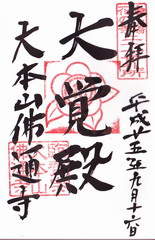 奉拝
平成廿五年九月十六日
大覚殿
大本山佛通寺